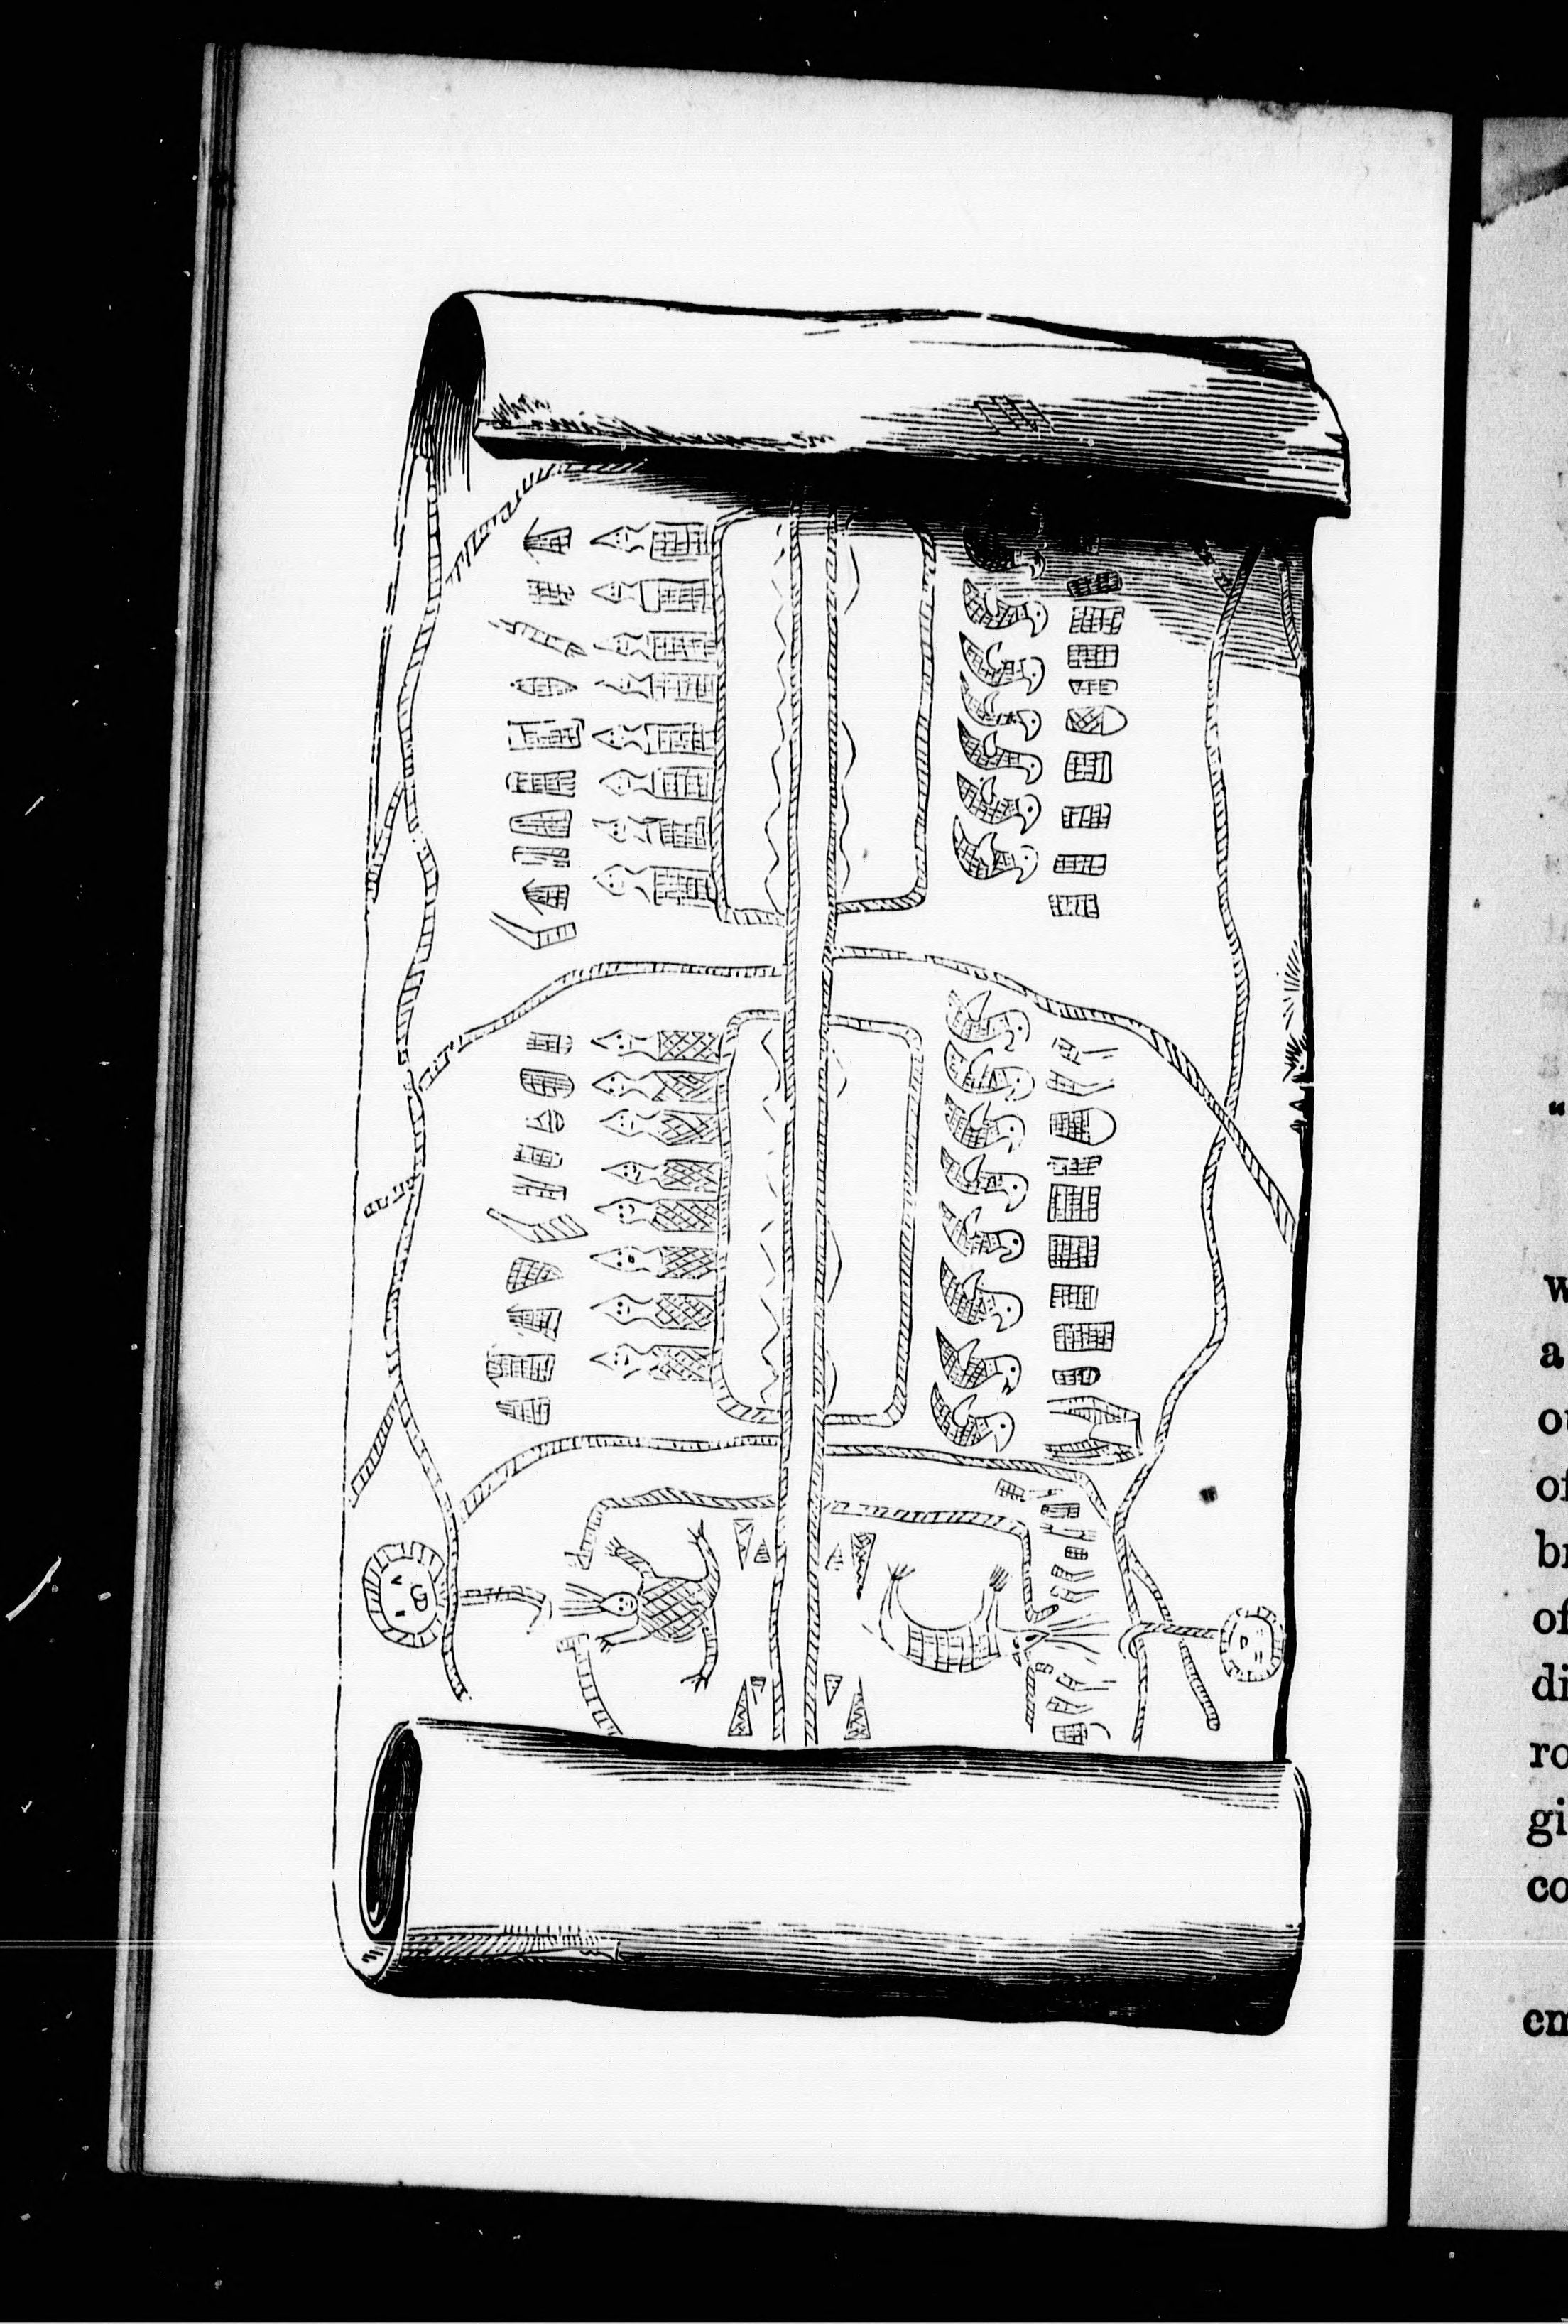 "
w
a
ou
of
br
of
di
ro
gi
co
cm